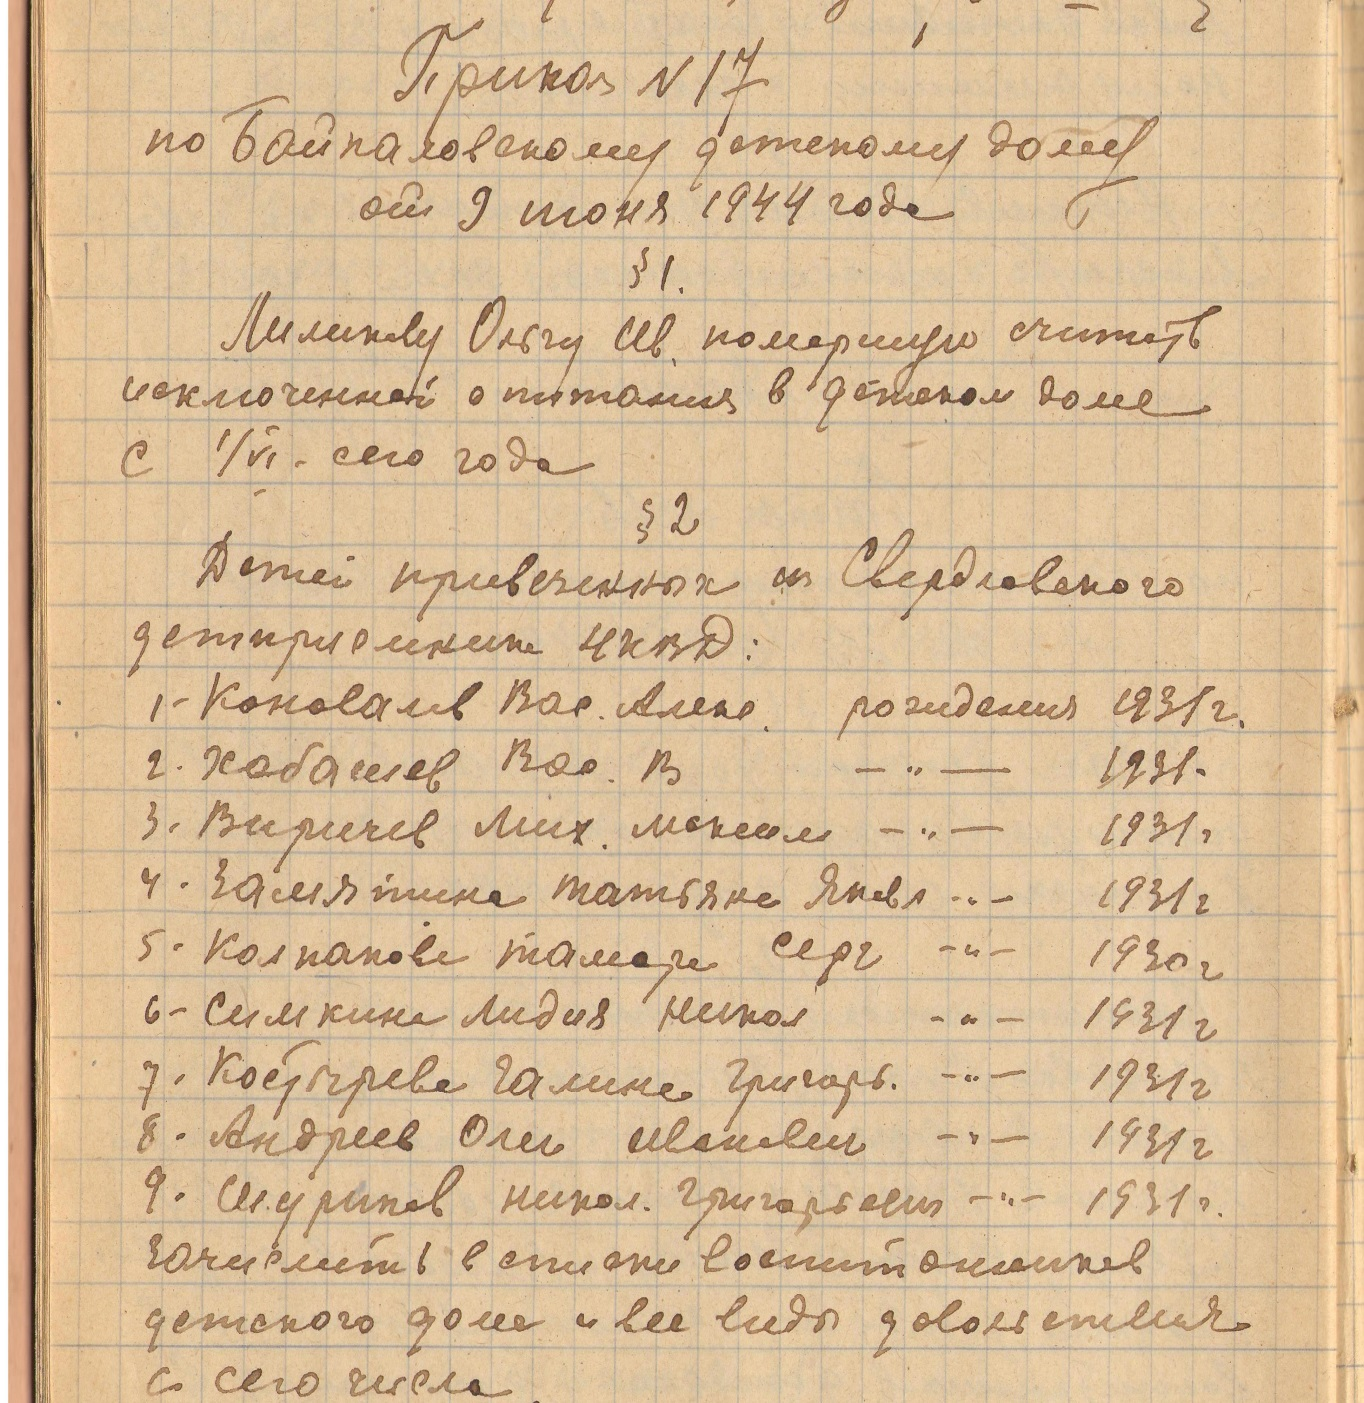 Приказ N 17
по Байкаловскому детскому дому
от 9 июня 1944 года
§ 1.
Ольгу Ив. помершую считать
исключенной с питания в детском доме
с 1/VI. сего года
§ 2
Детей привезенных из Свердловского
детприемника НКВД:
1- Коновалов Вас. Алекс. рождения 1931 г.
2. Хабашев Вас. В —"— 1931.
3. Виричев Мих. Максим —"— 1931 г
4. Замятина Татьяна Яковл -"- 1931 г
5. Колпакова Тамара Серг -"- 1930 г
6- Симкина Лидия Никол -"- 1931 г
7. Костырева Галина Григорь. -"- 1931 г
8. Андреев Олег Иванович -"- 1931 г
9. Шуриков Никол. Григорьевич -"- 1931 г.
Зачислить в списки воспитанников
детского дома и все виды довольствия
с сего числа